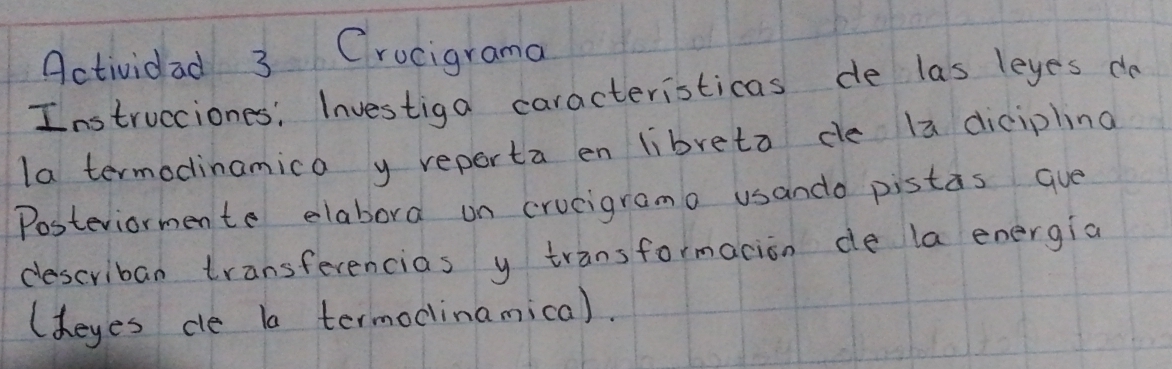 Actividad 3 Crucigrama
Instrucciones: Investiga características de las leyes de
la termodinamica y reporta en libreta de la diciplina
Posteriormente elabora un crucigrama usando pistas que
describan transferencias y transformación de la energía
(Leyes de la termodinamica).